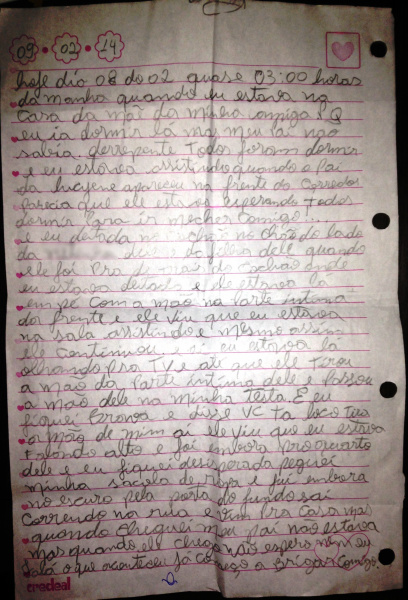 09 02 14
hoje dia 08 do 02 quase 03:00 horas
da manha quando eu estava na
casa da mãe da minha amiga. Q
eu ia dormir lá mas meu pai não
sabia. derrepente todos foram dormir
e eu estava assistindo quando o Pai
da apareceu na frente do corredor
Parecia que ele estava esperando todos
dormir Para ir mecher comigo!..
e eu deitada no no chão do lado
da filha dele quando
ele foi Pra do cochão onde
eu estava deitada e ele estava lá
em pé com a mão na Parte intima
da frente e ele viu que eu estava
na sala assistindo e mesmo assim
ele continuou e eu estava lá
olhando pra TV e até que ele tirou
a mão da Parte intima dele e Passou
a mão dele na minha testa. E eu
fiquei Bronva e disse VC ta loco tira
a mão de mim ai ele viu que eu estava
falando alto e foi embora pro quarto
dele e eu fiquei desesperada peguei
minha sacola de ropa e fui embora
no escuro pela porta do fundo sai
correndo na rua e vim Pra casa mas
quando cheguei meu pai não estava
mas quando ele chego não espero nem eu
fala o que aconteceu já começo a Brigar comigo.
credeal